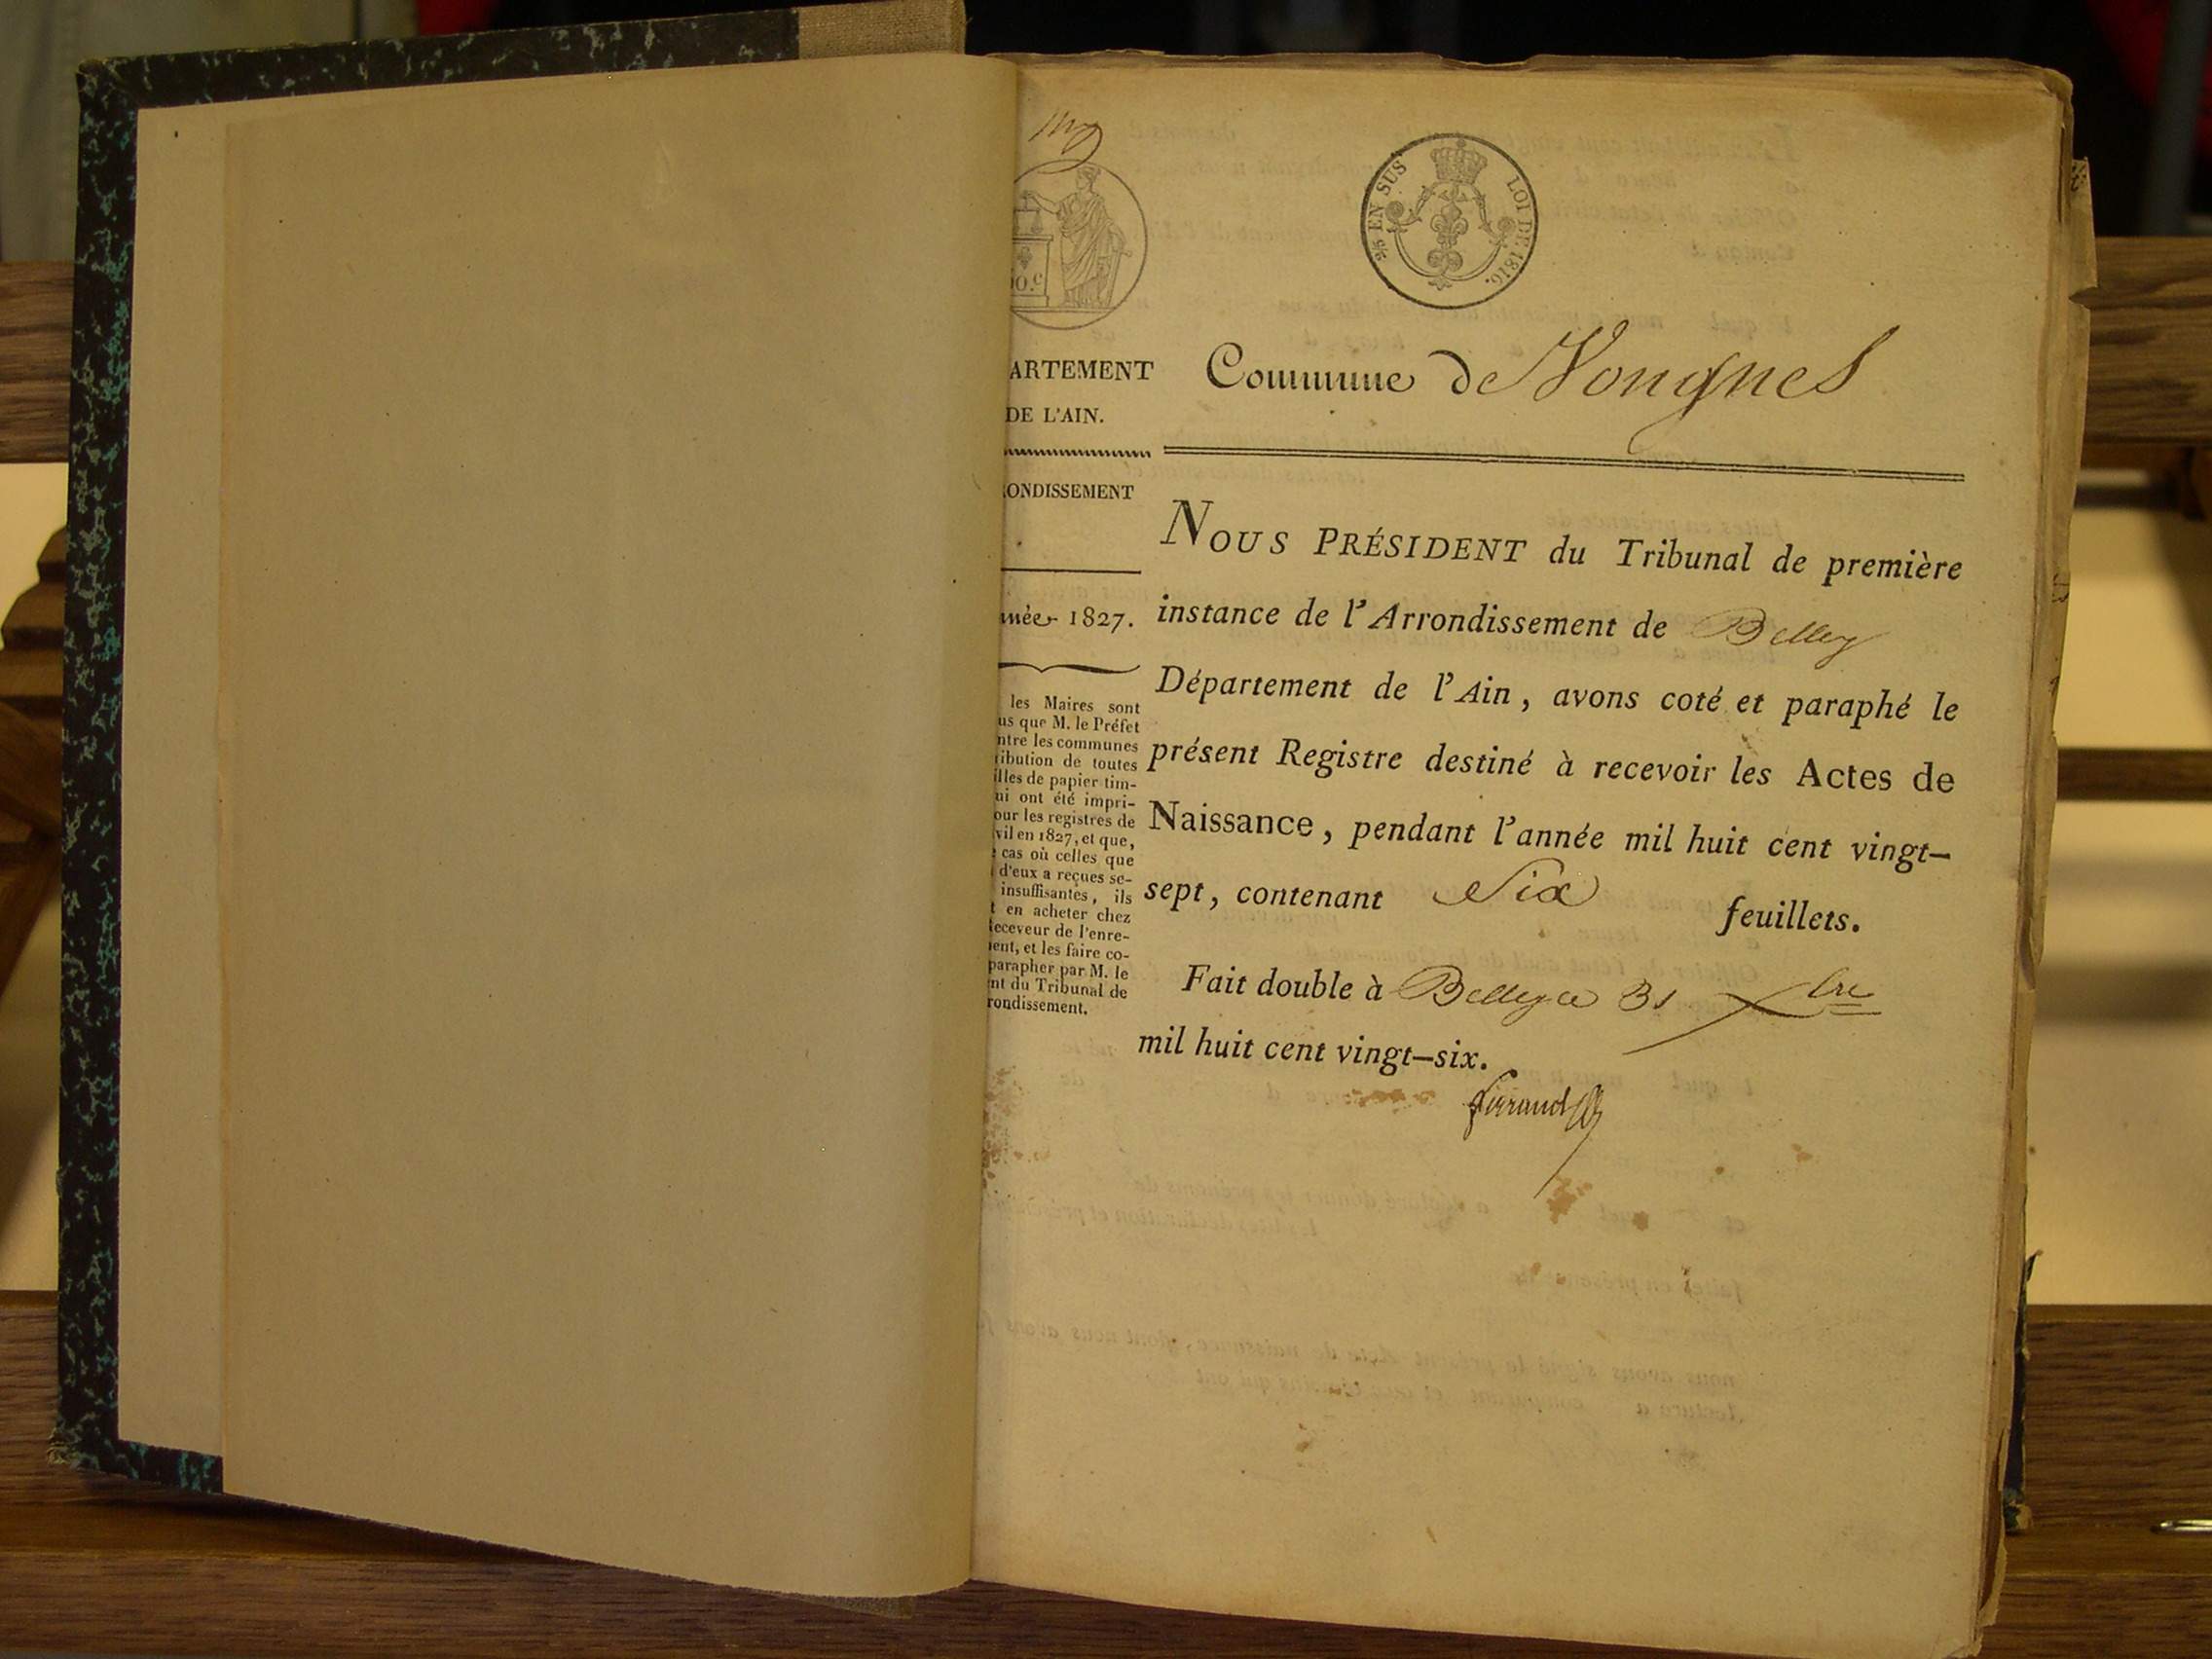 2/5 EN SUS LOI DE 1816.
00.c
ARTEMENT
DE L'AIN.
ONDISSEMENT
née 1827.
les Maires sont
us que M. le Préfet
ntre les communes
ribution de toutes
illes de papier tim-
ui ont été impri-
our les registres de
vil en 1827, et que,
cas où celles que
d'eux a reçues se-
insuffisantes, ils
t en acheter chez
eceveur de l'enre-
ent, et les faire co-
parapher par M. le
nt du Tribunal de
rondissement.
Commune de Vongnes
NOUS PRÉSIDENT du Tribunal de première
instance de l'Arrondissement de Belley
Département de l'Ain, avons coté et paraphé le
présent Registre destiné à recevoir les Actes de
Naissance, pendant l'année mil huit cent vingt-
sept, contenant Six feuillets.
Fait double à Belley ce 31 Xbre
mil huit cent vingt-six.